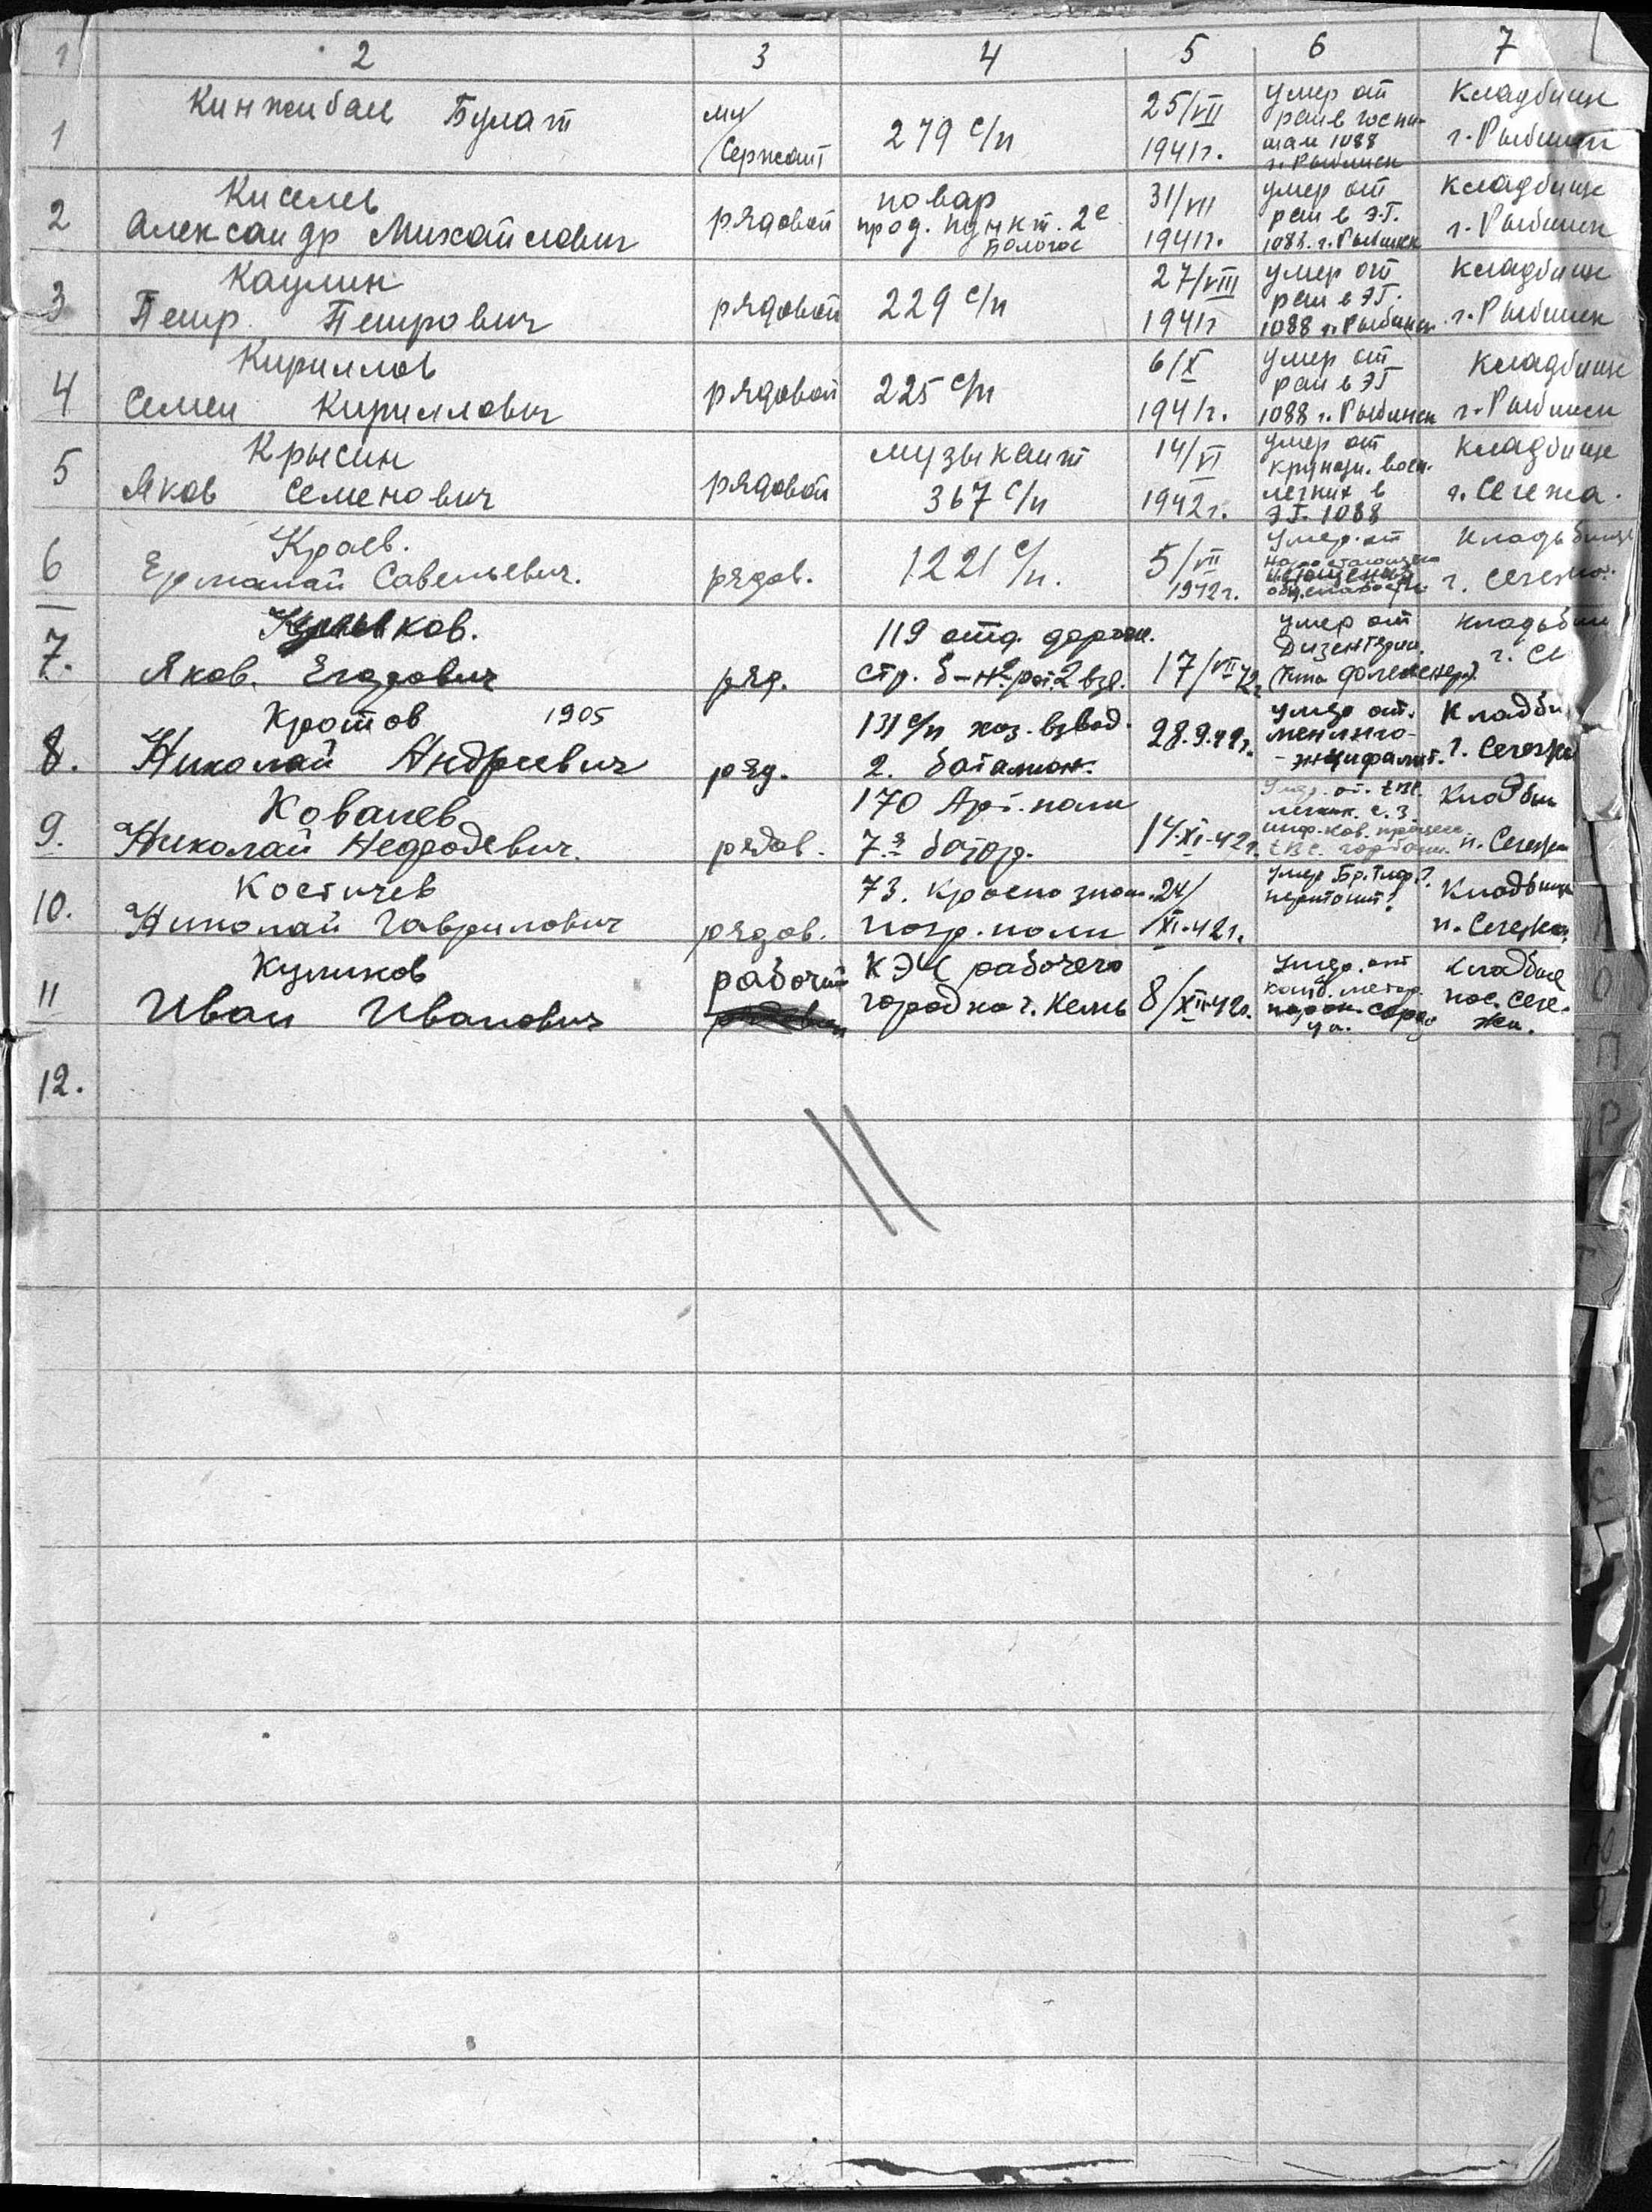 1 2 3 4 5 6 7
1 Кинжибаев Булат мл/сержант 279 с/п 25/VII 1941г. умер от ран в госпи-тал 1088 г. Рыбинск Кладбище г. Рыбинск
2 Киселев
Александр Михайлович рядовой повар прод. пункт. 2е Бологое 31/VII 1941г. умер от ран в Э.Г. 1088. г. Рыбинск Кладбище г. Рыбинск
3 Каулин
Петр Петрович рядовой 229 с/п 27/VIII 1941г умер от ран в ЭГ. 1088 г. Рыбинск Кладбище г. Рыбинск
4 Кириллов
Семен Кириллович рядовой 225 с/п 6/X 1941г. умер от ран в ЭГ 1088 г. Рыбинск Кладбище г. Рыбинск
5 Крысин
Яков Семенович рядовой музыкант 367 с/п 14/VI 1942г. умер от крупозн. восп. легких в Э.Г. 1088 Кладбище г. Сегежа.
6 Краев.
Ермолай Савельевич. рядов. 1221 с/п. 5/VII 1942г. Умер от нарастающего истощения общ. слабости. Кладьбище г. Сегежа.
7. ков.
Яков. Егорович ряд. 119 отд. дорожн. стр. б-н 2 рот. 2 взв. 17/VII 42г умер от Дизентерии. Кладьбищ г. Се
8. Кротов 1905
Николай Андреевич ряд. 131 с/п хоз. взвод. 2. баталион. 28.9.42г. умер от. менинго-энцифалит. Кладби г. Сегежа
9. Ковалев
Николай Нефодевич. рядов. 170 Арт. полк 7-я батар. 14.XI-42г. Умер. от. tвс. легких. с. 3. tвс. гортани. Кладбищ п. Сегежа
10. Костичев
Николай Гаврилович рядов. 73. Краснознам. погр. полк 24/XI-42г. умер Бр. тиф.? перитонит! Кладбище п. Сегежа.
11 Куликов
Иван Иванович рабочий КЭЧ рабочего городка г. Кемь 8/XII-42г. Умер. от комб. порок серд-ца. Кладбище пос. Сеге-жа.
12.
О
П
Р
Т
Я